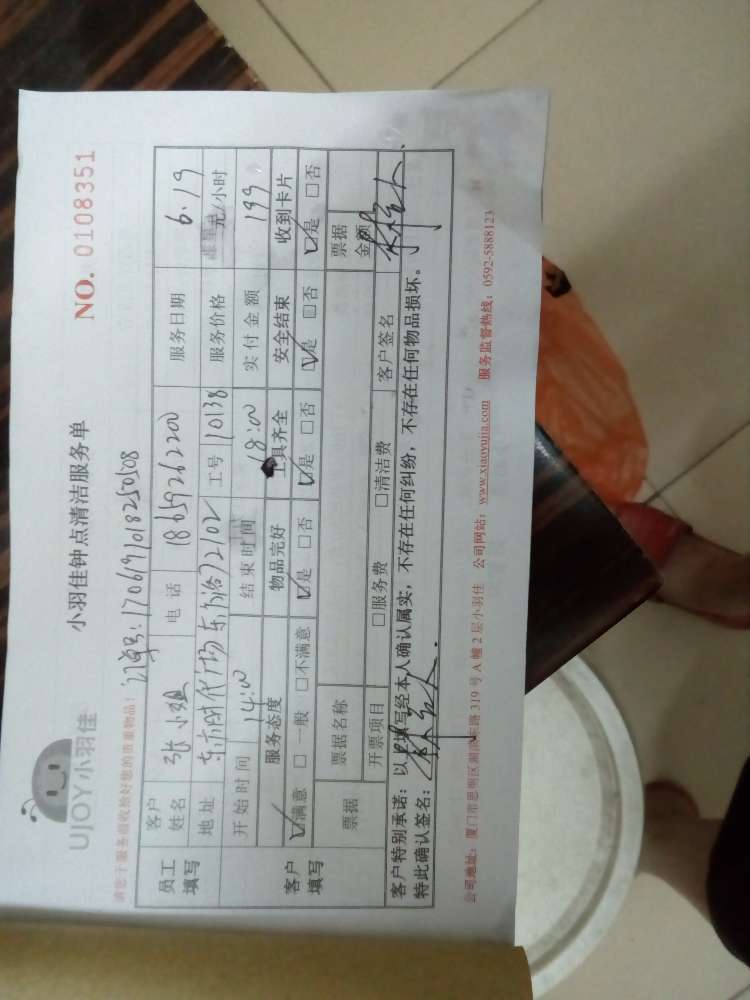 UJOY小羽佳
小羽佳钟点清洁服务单
NO. 0108351
请您于服务前收拾好您的贵重物品!
订单号:1706191018250508
员工填写
客户姓名 张小姐 电话 18659262200 服务日期 6.19
地址 东方时代广场 2102 工号 10138 服务价格 元/小时
开始时间 14:00 结束时间 18:00 实付金额 199
客户填写
服务态度 物品完好 工具齐全 安全结束 收到卡片
☑满意 □一般 □不满意 ☑是 □否 ☑是 □否 ☑是 □否 ☑是 □否
票据 票据名称 票据金额
开票项目 □服务费 □清洁费 客户签名
客户特别承诺:以上填写经本人确认属实,不存在任何纠纷,不存在任何物品损坏。
特此确认签名:
公司地址:厦门市思明区湖滨东路319号A幢2层小羽佳 公司网站:www.xiaoyujia.com 服务监督热线:0592-5888123